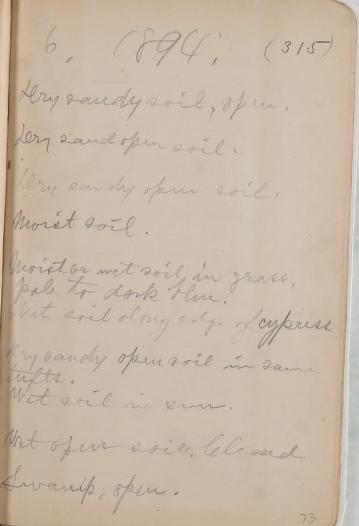 6, 1894, (315)
Very sandy soil, open.
Very sand open soil.
Very sandy open soil.
Moist soil.
Moist or wet soil in grass,
pale to dark blue.
Wet soil along edge of cypress
Very sandy open soil in same
tufts.
Wet soil in sun.
Wet open soil,
Swamp, open.
73